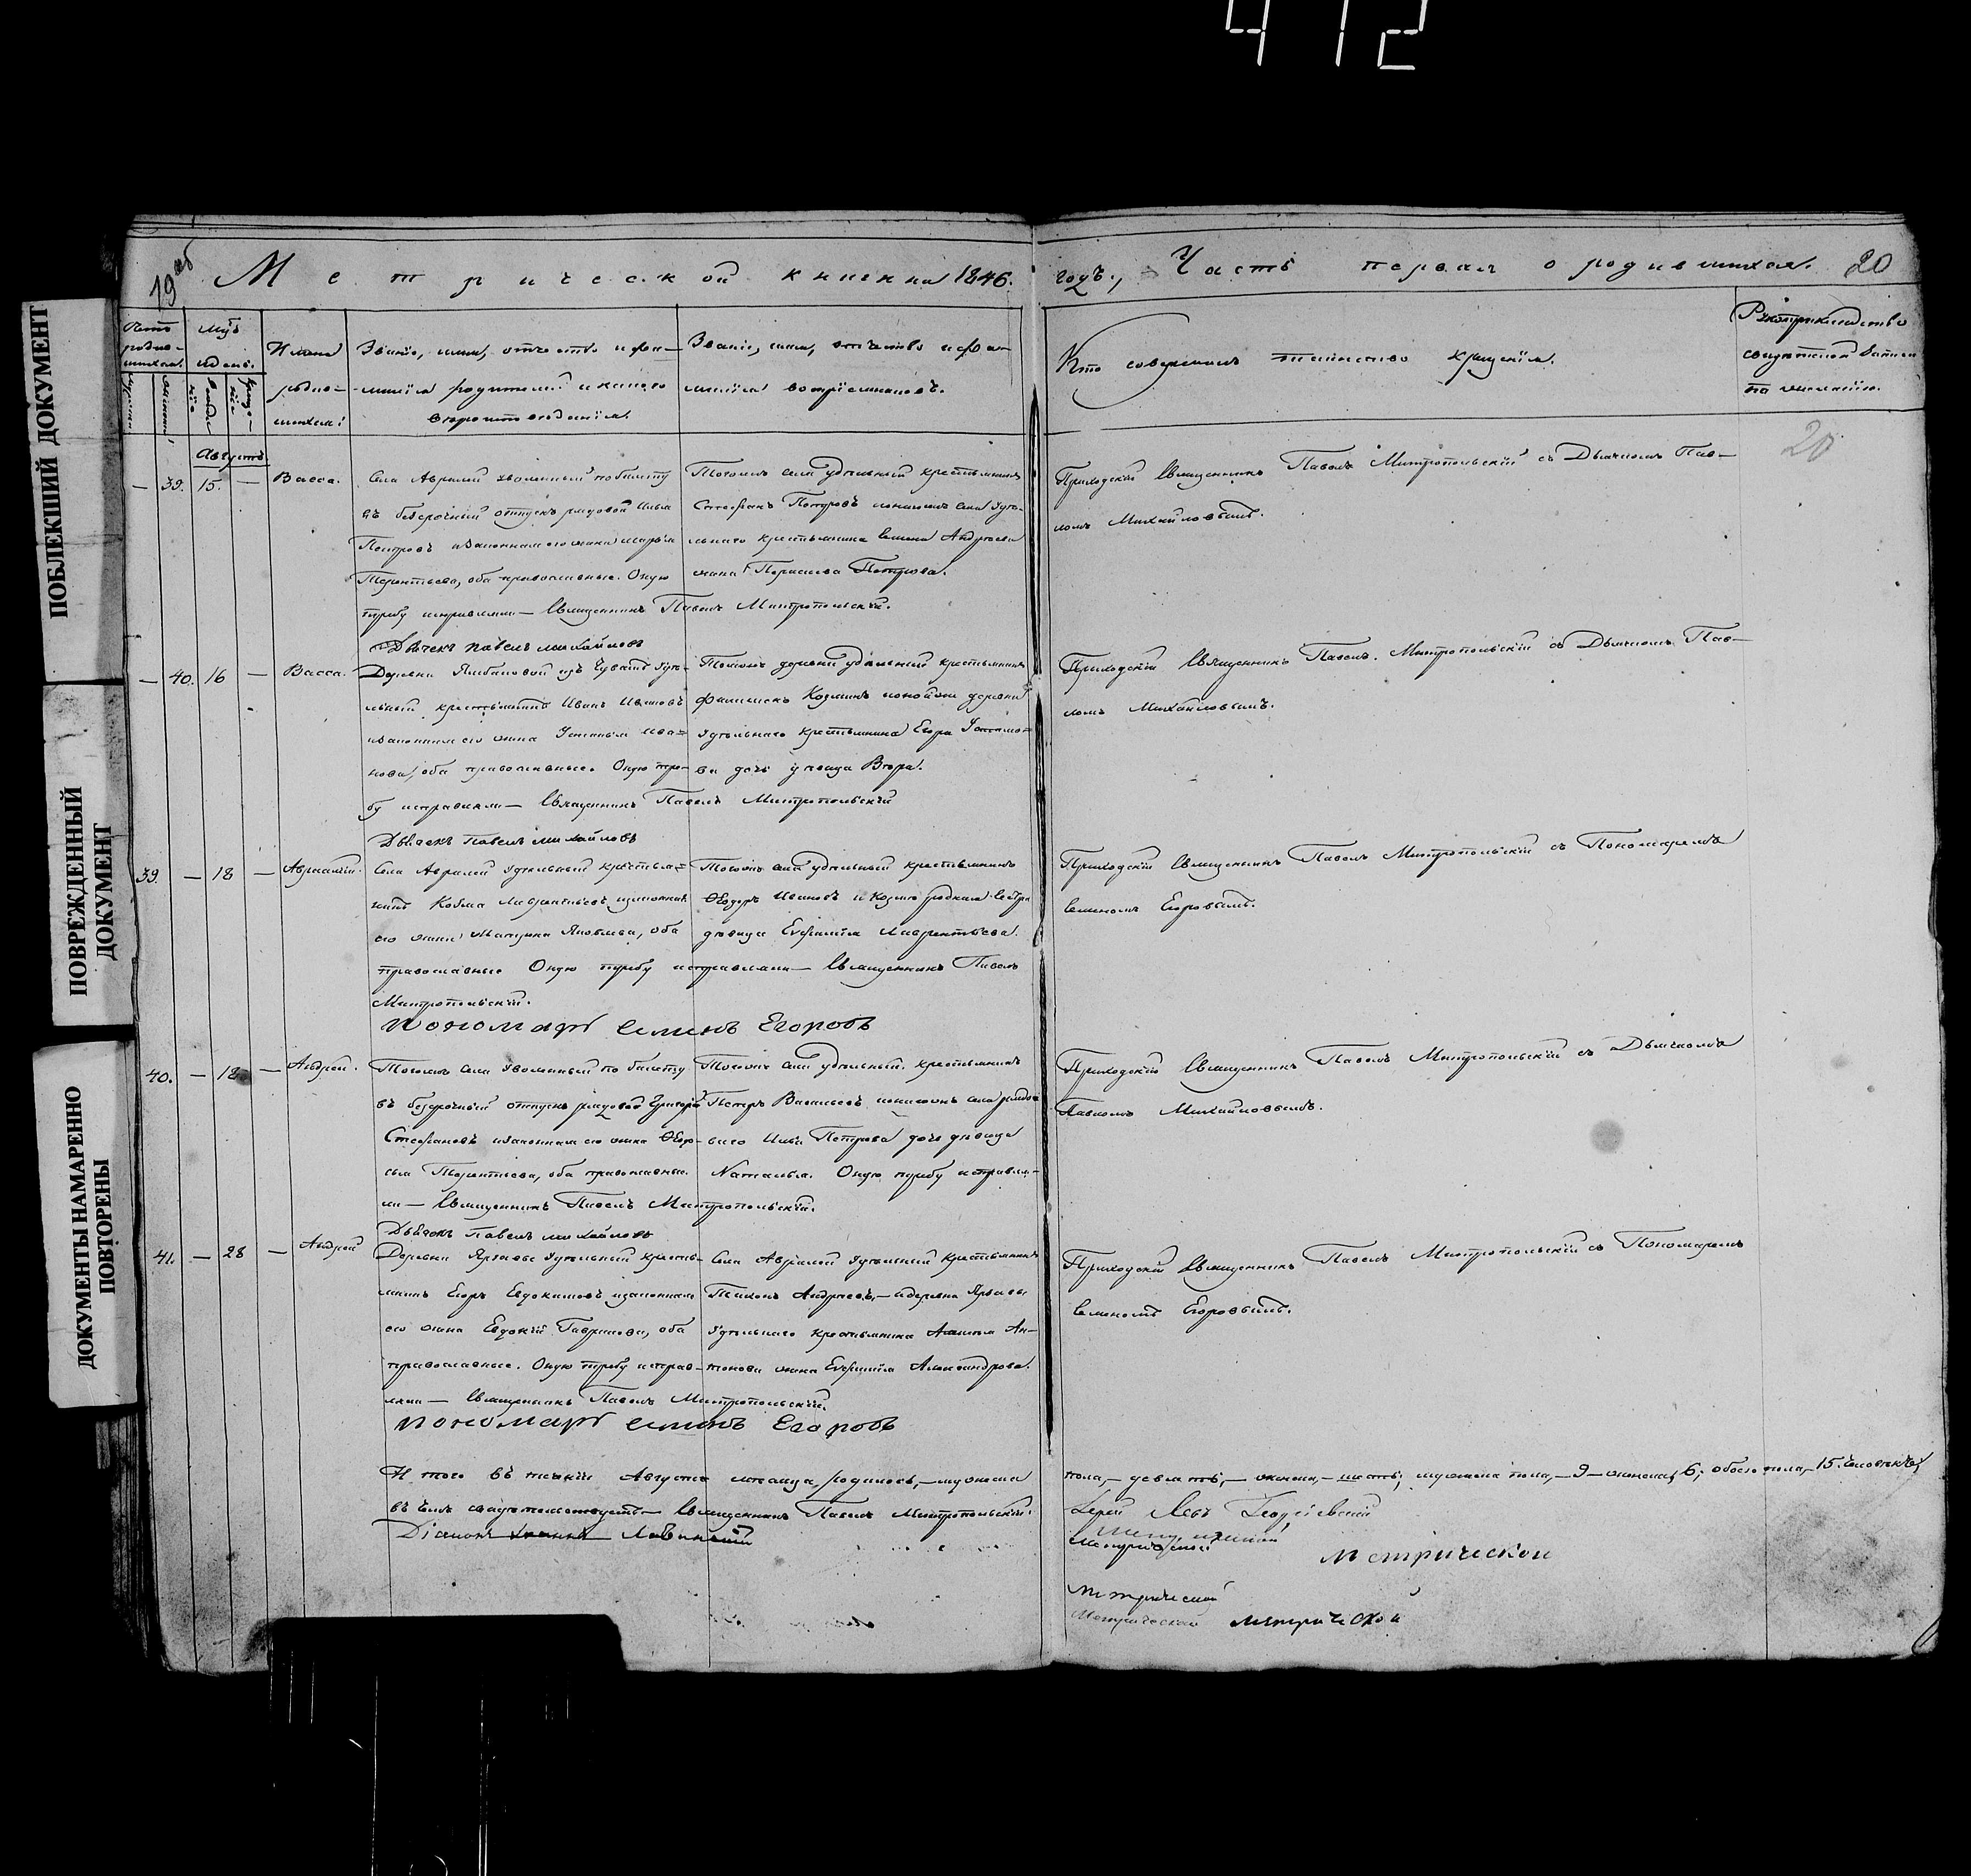 412
ПОБЛЕКШИЙ ДОКУМЕНТ
ПОВРЕЖДЕННЫЙ ДОКУМЕНТ
ДОКУМЕНТЫ НАМАРЕННО ПОВТОРЕНЫ
19об
Метрической книги на 1846. годъ, Часть первая о родившихся. 20
Имена родив-шихся.
Званіе, имя, отчество и фа-
милія родителей и какого
вѣроисповѣданія.
Званіе, имя, отчество и фа-
милія воспріемниковъ.
Кто совершалъ таинство крещенія.
Рукоприкладство
свидѣтелей записи
по желанію.
20
Августъ
— 39. 15. — Васса.
Села Авралей уволенный по билету
въ безсрочный отпускъ рядовой Илья
Петровъ и законная его жена Марья
Терентьева, оба православные. Оную
требу исправляли — Священникъ Павелъ Митропольскій.
Дьячекъ Павелъ Михайловъ
Тогожъ села удѣльный крестьянинъ
Стефанъ Петровъ и онагожъ села удѣ-
льнаго крестьянина Семена Андреева
жена Петрова.
Приходскій Священникъ Павелъ Митропольскій съ Дьячкомъ Пав-
ломъ Михайловымъ.
— 40. 16 — Васса.
Деревни изъ Чувашъ удѣ-
льный крестьянинъ Иванъ Ивановъ
и законная его жена Устинья Ива-
нова, оба православные. Оную тре-
бу исправляли — Священникъ Павелъ Митропольскій
Дьячекъ Павелъ Михайловъ
Тойжъ деревни удѣльный крестьянинъ
Козминъ и онойже деревни
удѣльнаго крестьянина Егора
ва дочь дѣвица Вѣра.
Приходскій Священникъ Павелъ Митропольскій съ Дьячкомъ Пав-
ломъ Михайловымъ.
39. — 18 — Авраамій.
Села Авралей удѣльный крестья-
нинъ Козма Лаврентьевъ и законная
его жена Матрена Яковлева, оба
православные Оную требу исправляли — Священникъ Павелъ
Митропольскій.
Пономарь Семенъ Егоровъ
Тогожъ села удѣльный крестьянинъ
Ѳедоръ Ивановъ и Козмы родная сестра
дѣвица Евфимія Лаврентьева.
Приходскій Священникъ Павелъ Митропольскій съ Пономаремъ
Семеномъ Егоровымъ.
40. — 18 — Андрей.
Тогожъ села уволенный по билету
въ безсрочный отпускъ рядовой Григорій
Стефановъ и законная его жена Ѳедо-
сья Терентьева, оба православные.
Тогожъ села удѣльный крестьянинъ
Петръ Васильевъ и онагожъ села рядо-
ваго Ильи Петрова дочь дѣвица
Наталья. Оную требу исправля-
ли — Священникъ Павелъ Митропольскій.
Дьячекъ Павелъ Михайловъ
Приходскій Священникъ Павелъ Митропольскій съ Дьячкомъ
Павломъ Михайловымъ.
41. — 28 — Андрей
Деревни удѣльный кресть-
янинъ Егоръ Евдокимовъ и законная
его жена Евдокія Гаврилова, оба
православные. Оную требу исправ-
ляли — Священникъ Павелъ Митропольскій.
Пономарь Семенъ Егоровъ
Села Авралей удѣльный крестьянинъ
Тихонъ Андреевъ, — и деревни
удѣльнаго крестьянина Ан-
тонова жена Евфимія Александрова.
Приходскій Священникъ Павелъ Митропольскій съ Пономаремъ
Семеномъ Егоровымъ.
И того въ теченіи Августа мѣсяца родилось, — мужеска пола, — девять, — женска, — шесть, мужеска пола, — 9 — женска, 6, обоего пола, — 15. человѣкъ,
въ чемъ свидѣтельствуетъ — Священникъ Павелъ Митропольскій.
Діаконъ Лавинскій
Іерей Левъ Георгіевскій
Метрической
Метрической
Метрической Метрической